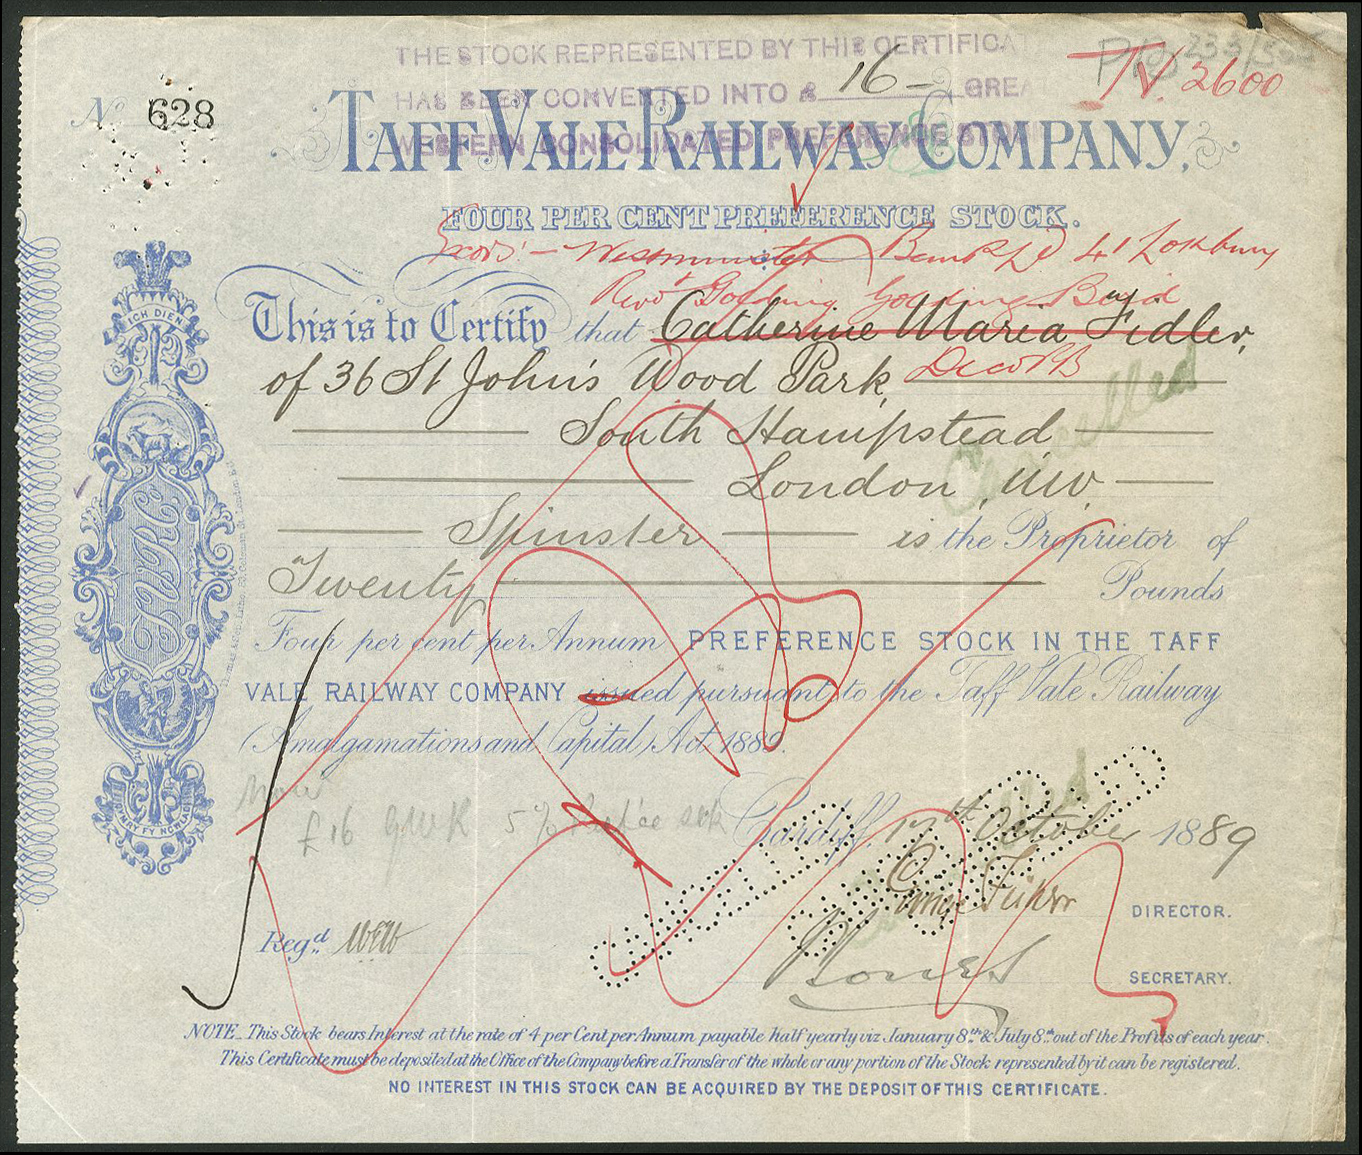 THE STOCK REPRESENTED BY THIS CERTIFICA
HAS BEEN CONVERTED INTO £ 16 - GREA
WESTERN CONSOLIDATED PREFERENCE STOCK
T.V. 2600
No 628
TAFF VALE RAILWAY COMPANY,
FOUR PER CENT PREFERENCE STOCK.
Exors:- Westminster Bank Ld 41 Lothbury
Revd Golding Golding Bird
This is to Certify that Catherine Maria Fidler,
of 36 St John's Wood Park, Decd
South Hampstead
Cancelled
London, NW
Spinster is the Proprietor of
Twenty Pounds
Four per cent per Annum PREFERENCE STOCK IN THE TAFF
VALE RAILWAY COMPANY issued pursuant to the Taff Vale Railway
(Amalgamations and Capital) Act 1889.
£16 GWR 5%
Cardiff, 17th October 1889
CANCELLED
George Fisher DIRECTOR.
Regd.
SECRETARY.
NOTE_ This Stock bears Interest at the rate of 4 per Cent per Annum payable half yearly viz January 8th & July 8th out of the Profits of each year.
This Certificate must be deposited at the Office of the Company before a Transfer of the whole or any portion of the Stock represented by it can be registered.
NO INTEREST IN THIS STOCK CAN BE ACQUIRED BY THE DEPOSIT OF THIS CERTIFICATE.
ICH DIEN
TVRCo